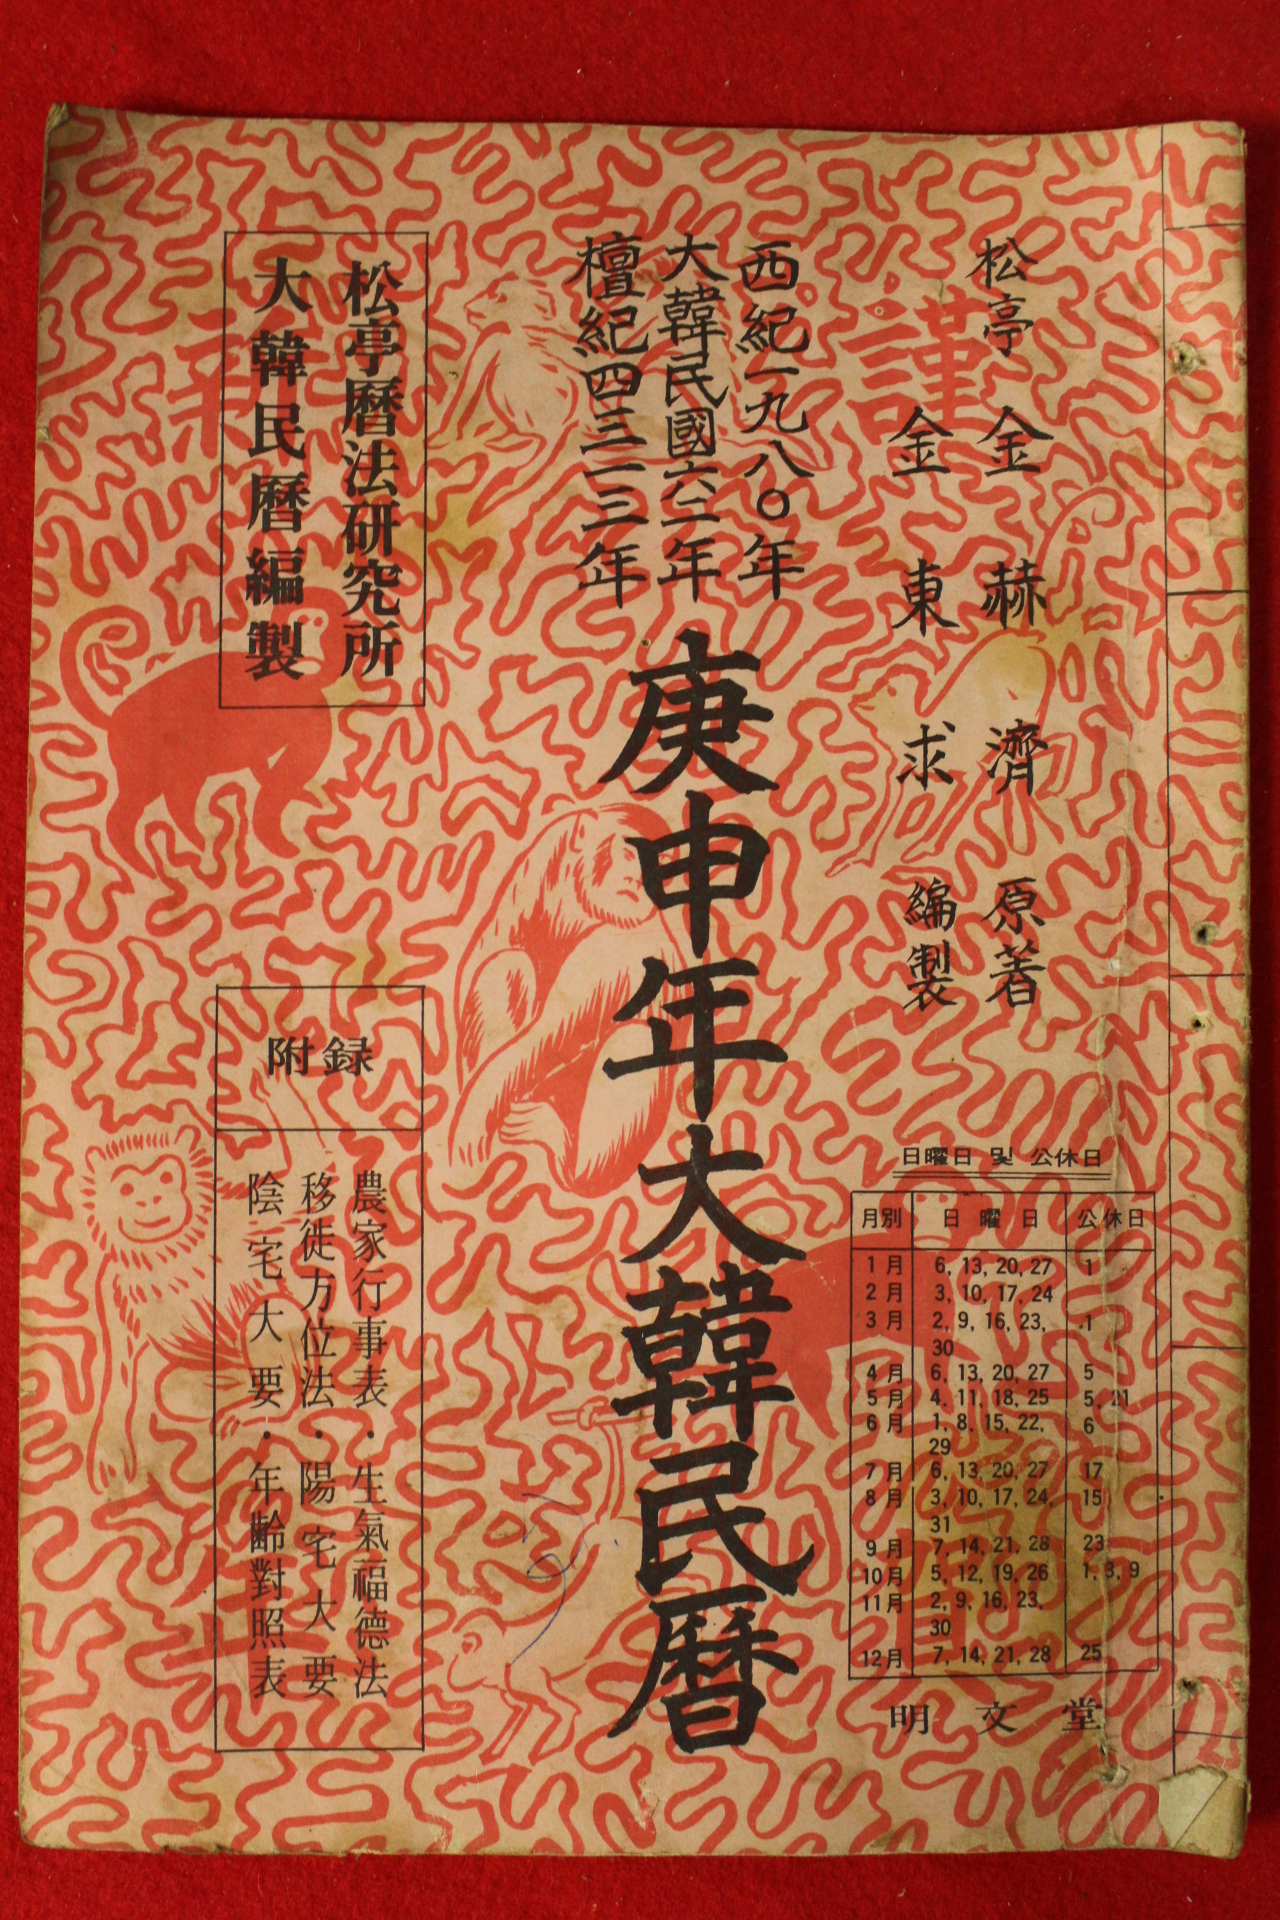 松亭 金赫濟 原著
金東求 編製
謹
西紀一九八〇年
大韓民國六二年
檀紀四三一三年
庚申年大韓民曆
松亭曆法研究所
大韓民曆編製
附録
農家行事表・生氣福德法
移徙方位法・陽宅大要
陰宅大要・年齡對照表
日曜日 및 公休日
月別 日曜日 公休日
1月 6, 13, 20, 27 1
2月 3, 10, 17, 24
3月 2, 9, 16, 23, 1
30
4月 6, 13, 20, 27 5
5月 4. 11, 18, 25 5, 21
6月 1, 8, 15, 22, 6
29
7月 6, 13, 20, 27 17
8月 3, 10, 17, 24, 15
31
9月 7, 14, 21, 28 23
10月 5, 12, 19, 26 1, 3, 9
11月 2, 9, 16, 23,
30
12月 7, 14, 21, 28 25
明文堂